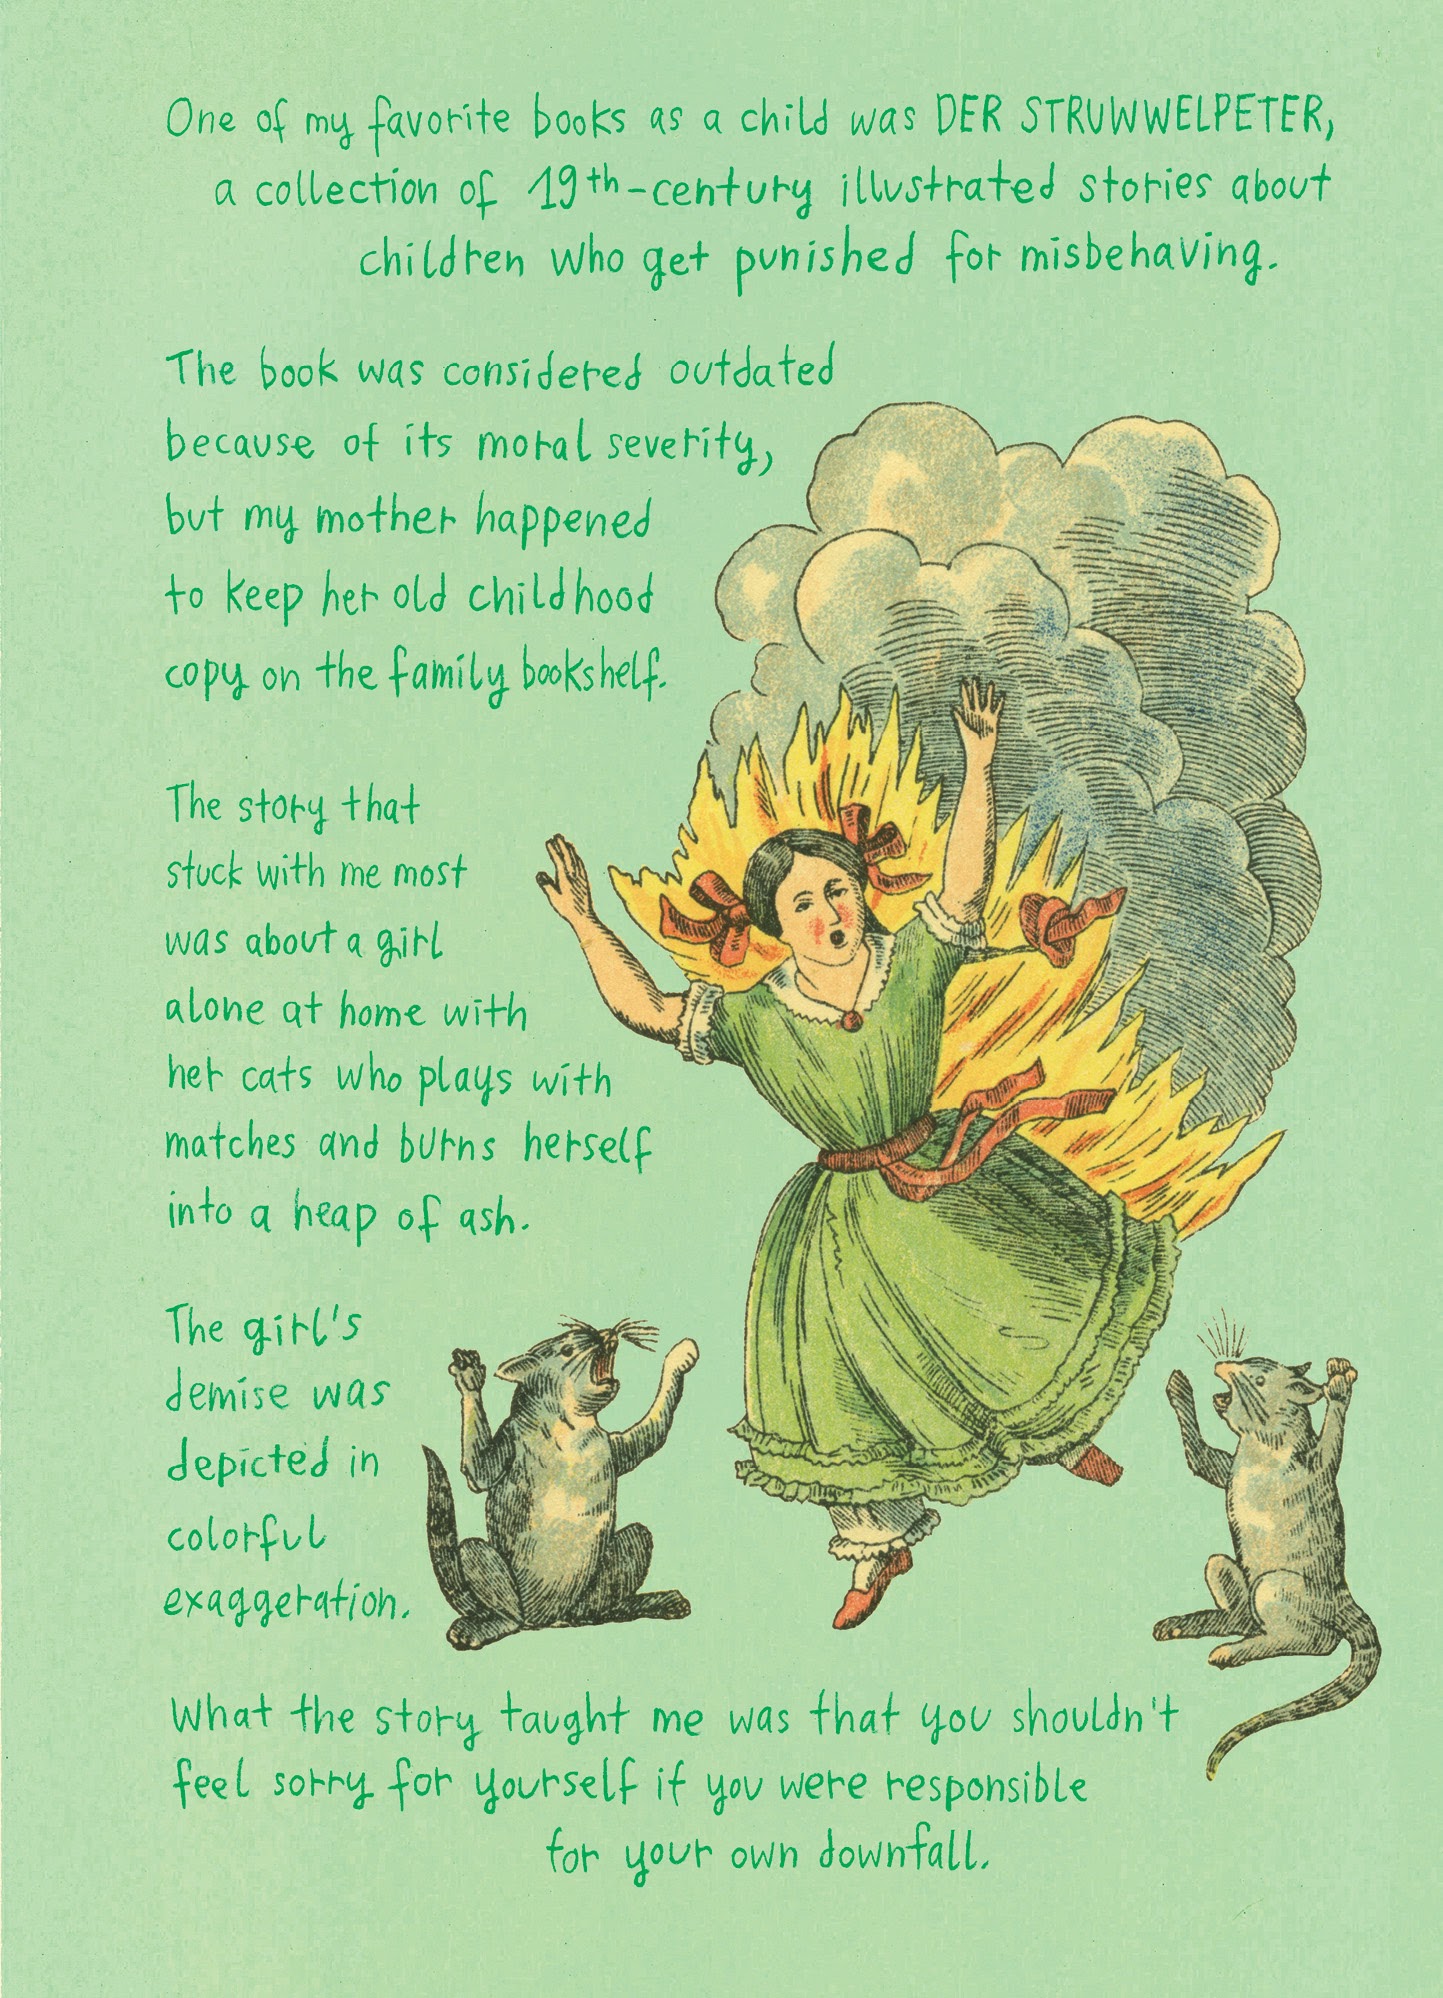 One of my favorite books as a child was DER STRUWWELPETER,
a collection of 19th-century illustrated stories about
children who get punished for misbehaving.
The book was considered outdated
because of its moral severity,
but my mother happened
to keep her old childhood
copy on the family bookshelf.
The story that
stuck with me most
was about a girl
alone at home with
her cats who plays with
matches and burns herself
into a heap of ash.
The girl's
demise was
depicted in
colorful
exaggeration.
What the story taught me was that you shouldn't
feel sorry for yourself if you were responsible
for your own downfall.